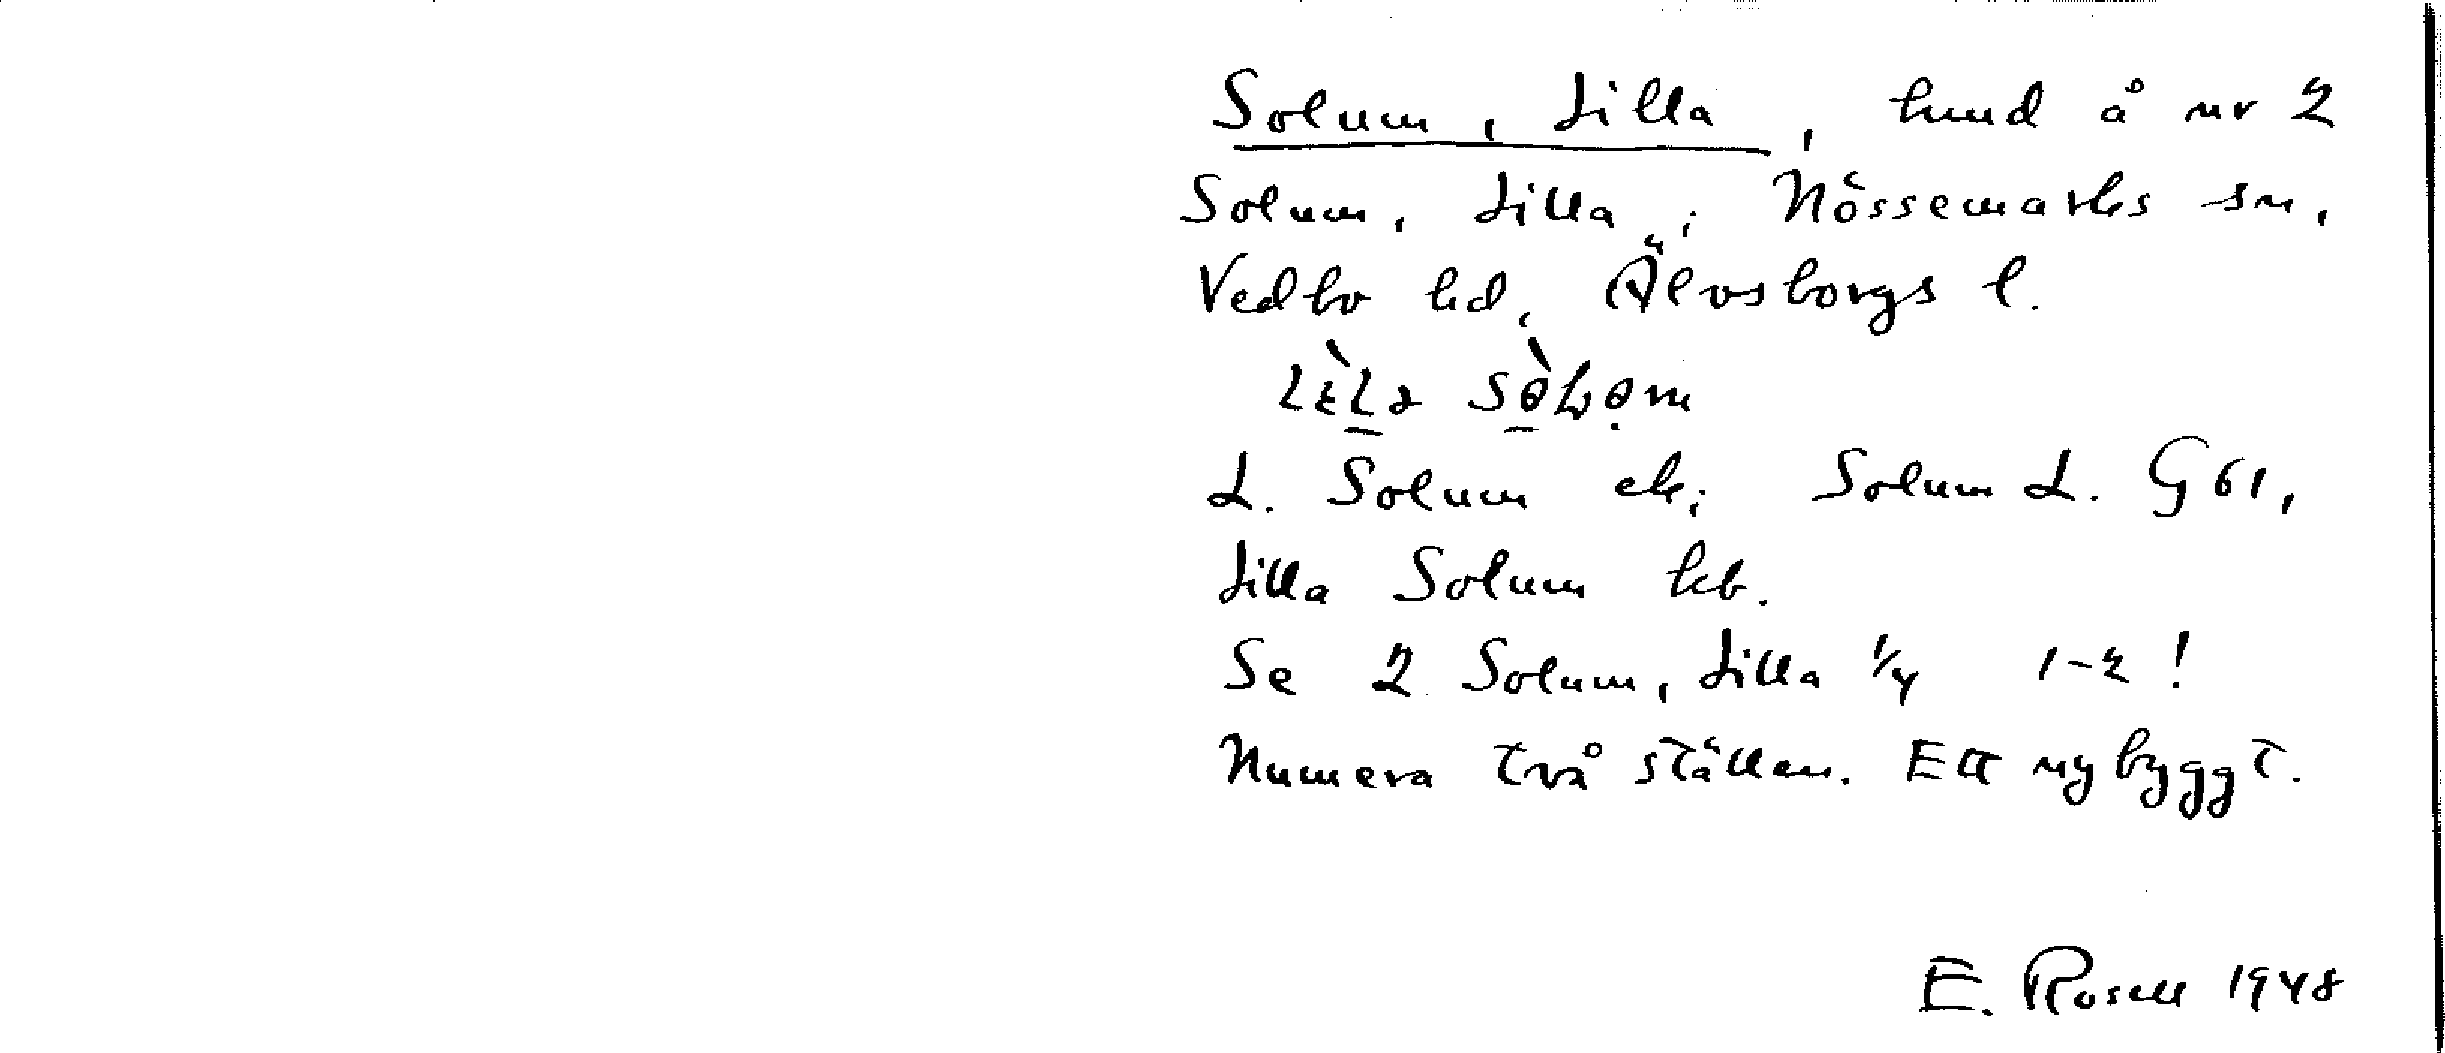 Solum, Lilla, hmd å nr 2
Solum, Lilla; Nössemarks sn,
Vedbo hd, Älvsborgs l.
L. Solum ek; Solum L. G 61,
Lilla Solum kb.
Se 2 Solum, Lilla 1/4 1-2!
Numera två ställen. Ett nybyggt.
E. Rosell 1948